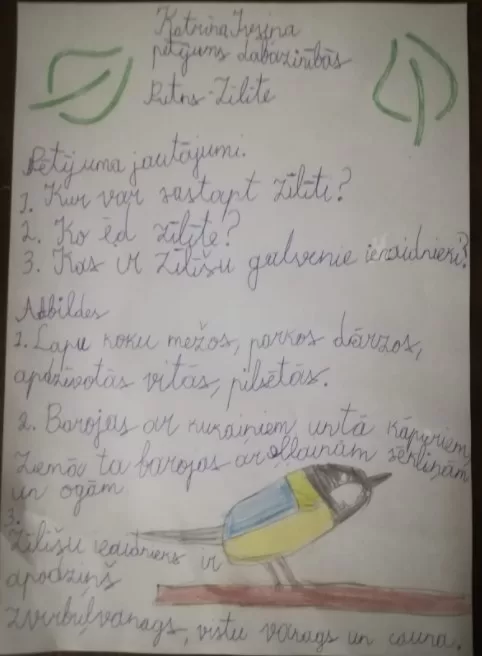 Katrīna Irsina
pētījums dabaszinībās
Putns - Zīlīte
Pētījuma jautājumi.
1. Kur var sastapt zīlīti?
2. Ko ēd zīlīte?
3. Kas ir Zīlīšu galvenie ienaidnieki?
Atbildes
1. Lapu koku mežos, parkos dārzos,
apdzīvotās vitās, pilsētās.
2. Barojas ar kukaiņiem un tā kāpuriem,
Ziemā ta barojas ar eļļainām sēkliņām
un ogām
3.
Zīlīšu ienaidnieks ir
apodziņš
zvirbuļvanags, vistu vanags un cauna.